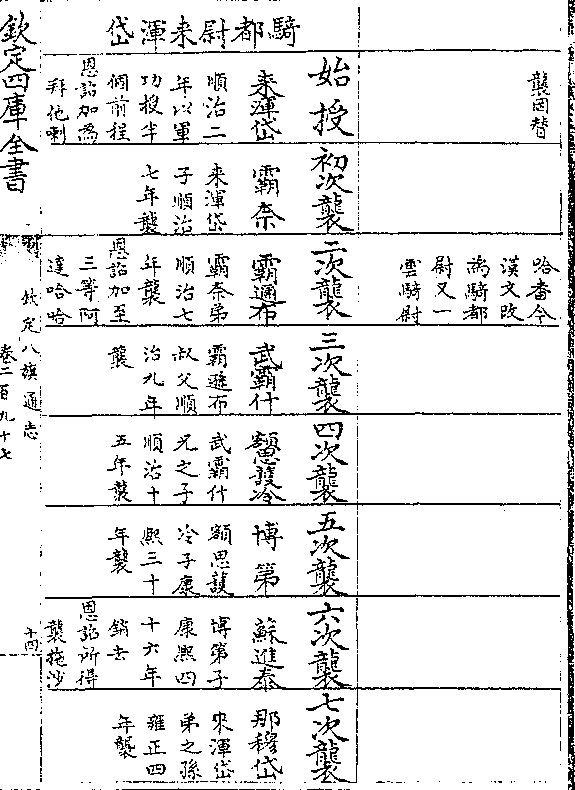 騎都尉来渾岱
襲因替
哈番今
漢文改
為騎都
尉又一
雲騎尉
始授
来渾岱
順治二
年以軍
功授半
個前程
恩詔加為
拜他喇
初次襲
霸奈
来渾岱
子順治
七年襲
二次襲
霸布
霸奈弟
順治七
年襲
恩詔加至
三等阿
達哈哈
三次襲
武霸什
霸布
叔父順
治九年
襲
四次襲
額思護冷
武霸什
兄之子
順治十
五年襲
五次襲
博第
額思護
冷子康
熙三十
年襲
六次襲
蘇進泰
博第子
康熙四
十六年
銷去
恩詔所得
襲拖沙
七次襲
那穆岱
来渾岱
弟之孫
雍正四
年襲
欽定四庫全書
欽定八旗通志
卷二百九十七
十四